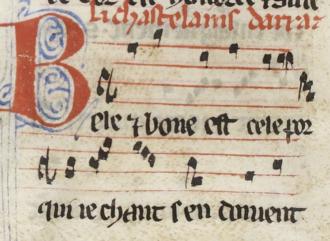 Li chastelains darraz
Bele ⁊ bone est cele por
qui ie chant s'en doiuent